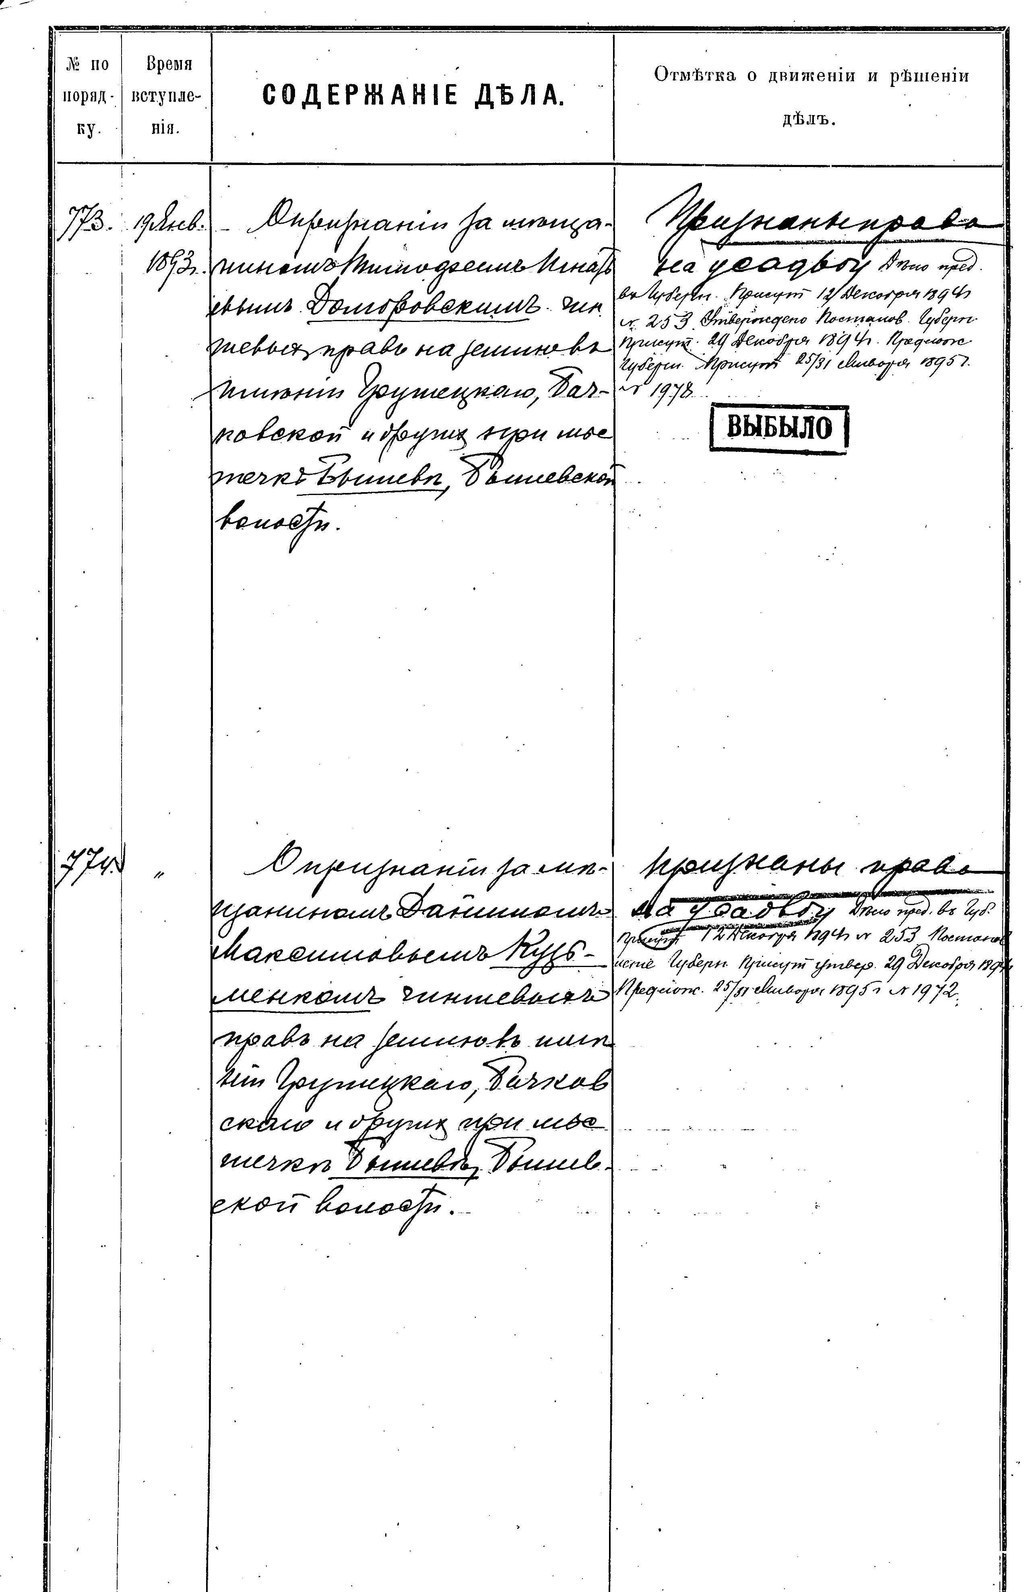 № по поряд- ку.
Время вступле- нія.
СОДЕРЖАНІЕ ДѢЛА.
Отмѣтка о движеніи и рѣшеніи дѣлъ.
773.
19 Янв.
1893 г.
О признаніи за мѣща-
ниномъ Тимофеемъ Игнать
евымъ Домбровскимъ чин
шевыхъ правъ на землю въ
имѣніи Грушецкаго, Бач-
ковской и другихъ при мѣс
течкѣ Бышевѣ, Бышевской
волости.
Признаны права
на усадьбу Дѣло пред.
въ Губерн. Присут 12 Декабря 1894 г.
№ 253 Утверждено Постанов. Губерн
Присут. 29 Декабря 1894 г. Предлож
Губерн. Присут 25/31 Января 1895 г.
№ 1978
ВЫБЫЛО
774.
"
О признаніи за мѣ-
щаниномъ Даниломъ
Максимовымъ Кузь-
менкомъ чиншевыхъ
правъ на землю въ имѣ
ніи Грушецкаго, Бачков
скаго и другихъ при мѣс
течкѣ Бышевѣ, Бышев-
ской волости.
Признаны права
на усадьбу Дѣло пред. въ Губ.
Присут 12 Декабря 1894 г № 253 Постанов
Губерн Присут утвер. 29 Декабря 1894
Предлож. 25/31 Января 1895 г № 1972.